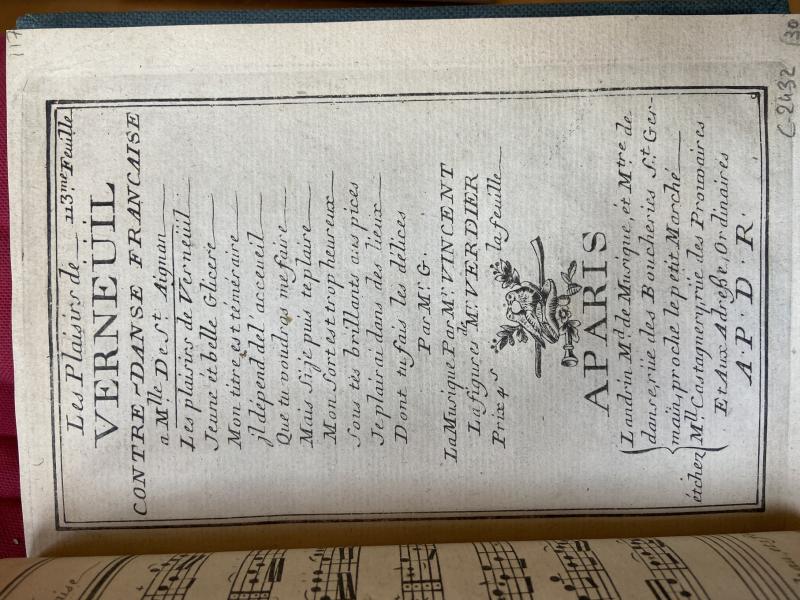 Les Plaisirs de 113.me Feuille
VERNEÜIL
CONTRE-DANSE FRANCAISE
a M.lle De S.t Aignan
Les plaisirs de Verneüil
Jeune et belle Glicere
Mon titre est temeraire
jl dépend de l'acceueil
Que tu voudras me faire
Mais Si je puis te plaire
Mon Sort est trop heureux
Sous tes brillants auspices
Je plairai dans des lieux
Dont tu fais les délices
Par M.r G.
La Musique Par M.r VINCENT
La figure de M.r VERDIER
Prix 4.s la feuille
A PARIS
Landrin M.d de Musique, et M.tre de
danse, rüe des Boucheries S.t Ger-
main, proche le petit Marché
et chez M.lle Castagnery, rüe des Prouvaires
Et Aux Adresse, Ordinaires
A. P. D. R.
117
C-2432
130